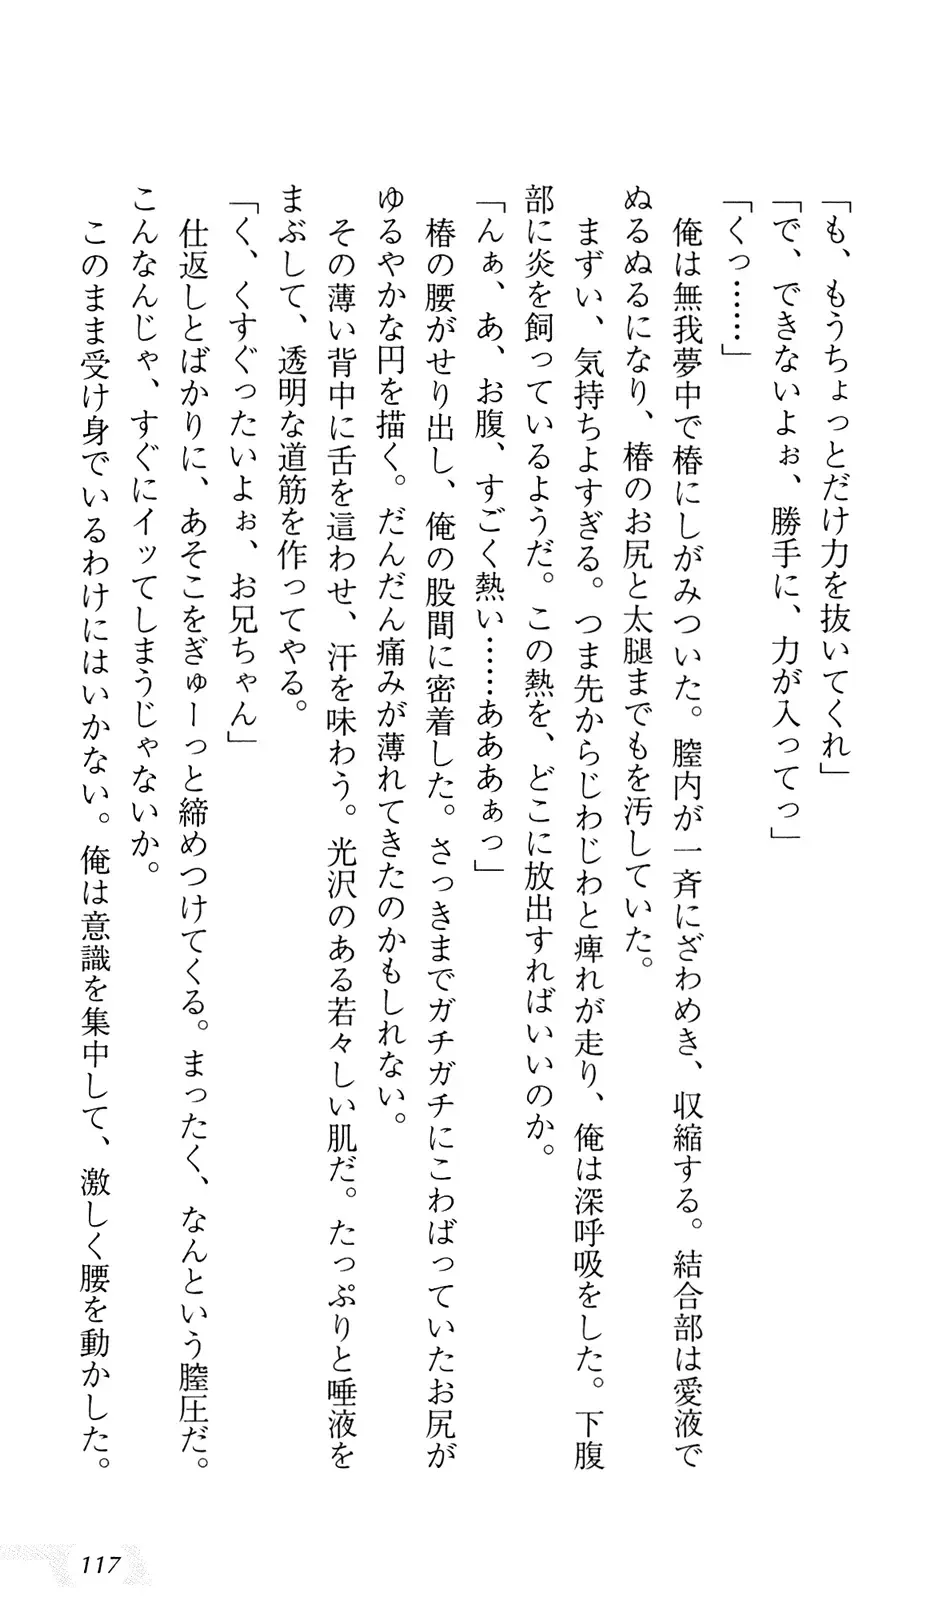 「も、もうちょっとだけ力を抜いてくれ」
「で、できないよぉ、勝手に、力が入ってっ」
「くっ……」
俺は無我夢中で椿にしがみついた。膣内が一斉にざわめき、収縮する。結合部は愛液で
ぬるぬるになり、椿のお尻と太腿までもを汚していた。
まずい、気持ちよすぎる。つま先からじわじわと痺れが走り、俺は深呼吸をした。下腹
部に炎を飼っているようだ。この熱を、どこに放出すればいいのか。
「んぁ、あ、お腹、すごく熱い……あああぁっ」
椿の腰がせり出し、俺の股間に密着した。さっきまでガチガチにこわばっていたお尻が
ゆるやかな円を描く。だんだん痛みが薄れてきたのかもしれない。
その薄い背中に舌を這わせ、汗を味わう。光沢のある若々しい肌だ。たっぷりと唾液を
まぶして、透明な道筋を作ってやる。
「く、くすぐったいよぉ、お兄ちゃん」
仕返しとばかりに、あそこをぎゅーっと締めつけてくる。まったく、なんという膣圧だ。
こんなんじゃ、すぐにイッてしまうじゃないか。
このまま受け身でいるわけにはいかない。俺は意識を集中して、激しく腰を動かした。
117